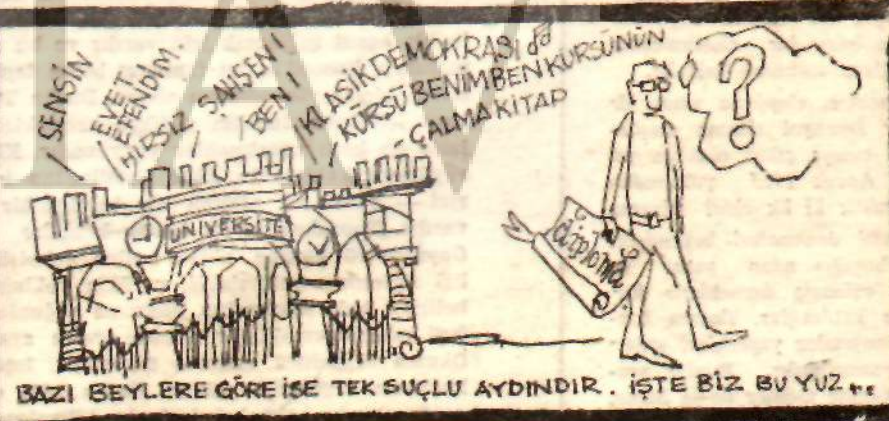 SENSİN
EVET
EFENDİM.
HIRSIZ
ŞAHSEN!
BEN!
KLASİK DEMOKRASİ
KÜRSÜ BENİM BEN KÜRSÜNÜN
ÇALMA KİTAP
?
ÜNİVERSİTE
diploma
BAZI BEYLERE GÖRE İSE TEK SUÇLU AYDINDIR. İŞTE BİZ BU YUZ...